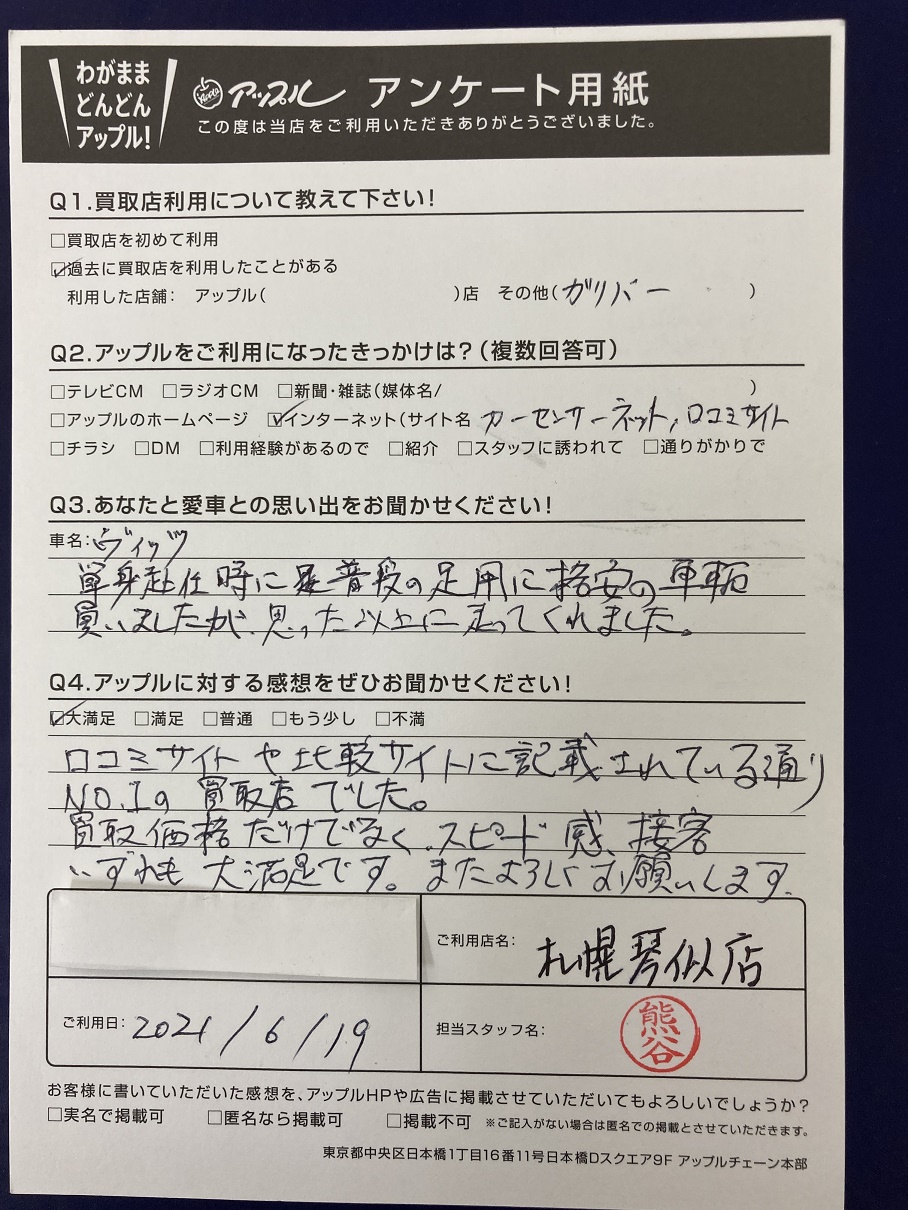 わがまま
どんどん
アップル!
Apple アップル アンケート用紙
この度は当店をご利用いただきありがとうございました。
Q1.買取店利用について教えて下さい!
□買取店を初めて利用
☑過去に買取店を利用したことがある
利用した店舗: アップル( )店 その他(ガリバー )
Q2.アップルをご利用になったきっかけは?(複数回答可)
□テレビCM □ラジオCM □新聞・雑誌(媒体名/ )
□アップルのホームページ ☑インターネット(サイト名 カーセンサーネット,口コミサイト
□チラシ □DM □利用経験があるので □紹介 □スタッフに誘われて □通りがかりで
Q3.あなたと愛車との思い出をお聞かせください!
車名:ヴィッツ
単身赴任時に普段の足用に格安の車輌
買いましたが、思った以上に走ってくれました。
Q4.アップルに対する感想をぜひお聞かせください!
☑大満足 □満足 □普通 □もう少し □不満
口コミサイトや比較サイトに記載されている通り
NO.1の買取店でした。
買取価格だけでなく、スピード感、接客
いずれも大満足です。またよろしくお願いします.
ご利用店名: 札幌琴似店
ご利用日: 2021/6/19 担当スタッフ名: 熊谷
お客様に書いていただいた感想を、アップルHPや広告に掲載させていただいてもよろしいでしょうか?
□実名で掲載可 □匿名なら掲載可 □掲載不可 ※ご記入がない場合は匿名での掲載とさせていただきます。
東京都中央区日本橋1丁目16番11号日本橋Dスクエア9F アップルチェーン本部